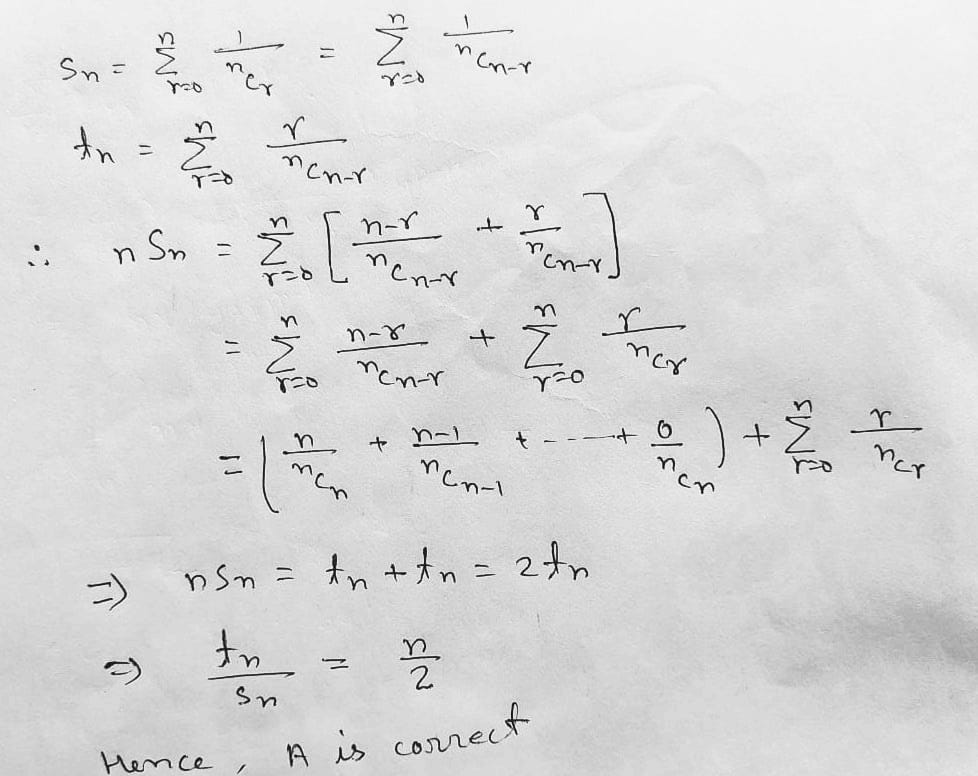 Sn = n Σ r=0 1/nCr = n Σ r=0 1/nCn-r
tn = n Σ r=0 r/nCn-r
∴ n Sn = n Σ r=0 [ n-r/nCn-r + r/nCn-r ]
= n Σ r=0 n-r/nCn-r + n Σ r=0 r/nCr
= ( n/nCn + n-1/nCn-1 + ---+ 0/nCn ) + n Σ r=0 r/nCr
⇒ nSn = tn + tn = 2tn
⇒ tn/Sn = n/2
Hence, A is correct